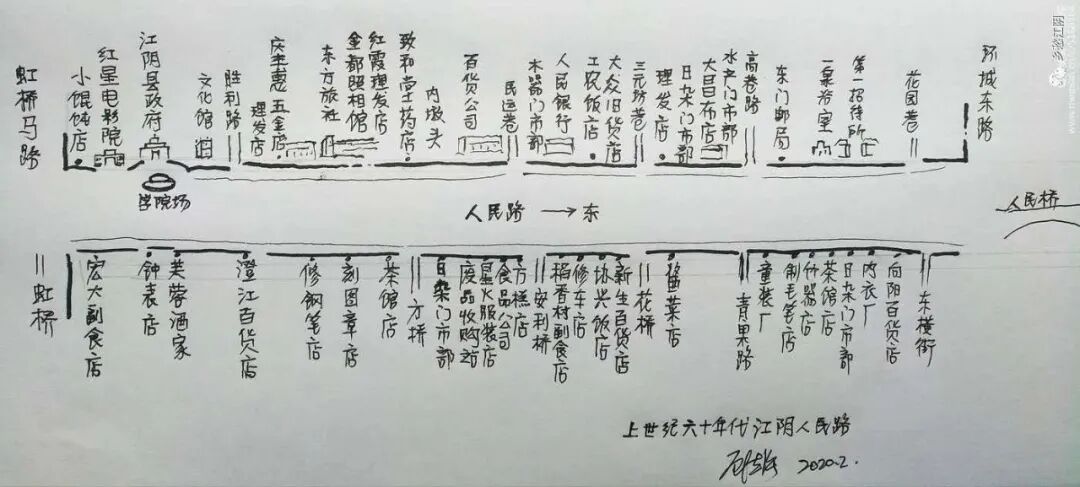 虹桥马路
小馄饨店
红星电影院
江阴县政府
文化馆
胜利路
理发店
庆生惠五金店
东方旅社
金都照相馆
红霞理发店
致和堂药店
内墩头
百货公司
民运巷
木器门市部
人民银行
工农饭店
大众旧货店
三元坊巷
理发店
日杂门市部
大昌布店
水产门市部
高巷路
东门邮局
第一招待所
花园巷
环城东路
学院场
人民路 → 东
人民桥
虹桥
宏大副食店
钟表店
芙蓉酒家
澄江百货店
修钢笔店
刻图章店
茶馆店
方桥
日杂门市部
废品收购站
星火服装店
食品公司
方糕店
安利桥
稻香村副食店
修车店
协兴饭店
新生百货店
花桥
酱菜店
青果路
童装厂
制毛笔店
什器店
茶馆店
日杂门市部
内衣厂
向阳百货店
东横街
上世纪六十年代江阴人民路
2020.2.
乡愁江阴